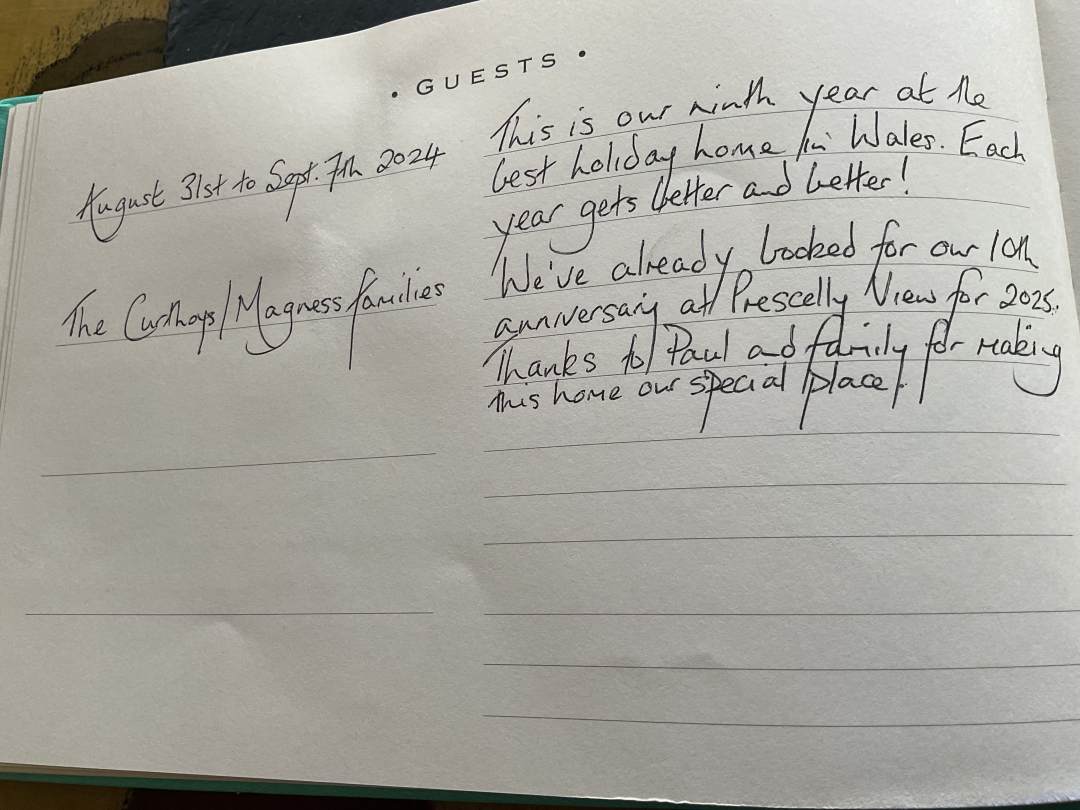 • GUESTS •
August 31st to Sept. 7th 2024
The Curthoys/Magness families
This is our ninth year at the
best holiday home in Wales. Each
year gets better and better!
We've already booked for our 10th
anniversary at Prescelly View for 2025.
Thanks to Paul and family for making
this home our special place!